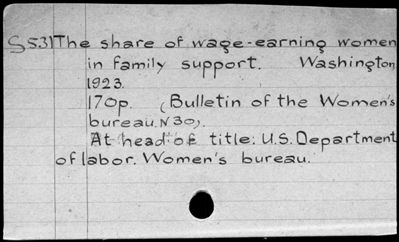 S531 The share of wage-earning women
in family support. Washington,
1923.
170p. (Bulletin of the Women's
bureau. N 30).
At head of title: U.S. Department
of labor. Women's bureau.